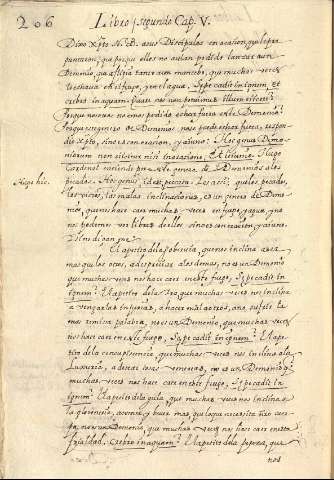 206 Libro segundo Cap. V.
Dixo Xpto N. B. a sus Discipulos en ocasion, que le pre
guntaron, que porque ellos no auian podido lanzar a un
Demonio, que afligia tanto a un mancebo, que muchas veces
le echaua en el fuego, y en el agua, Sæpe cadit in ignem, et
crebro in aquam: Quare nos non potuimus illum eijcere?
Porque nosotros no emos podido echar fuera este Demonio?
Porque ese genero de Demonio, no se puede echar fuera, respon
dio Xpto, sino es con oracion, y aiuno: Hoc genus Dæmo
niorum non eijcitur nisi in oratione, et ieiunio. Hugo
Hugo hic.
Cardenal entiende por este genero de Demonios a los
pecados. Hoc genus, idest, peccata. Los
los vicios, las malas inclinaciones, es un genero de Demo
nios, que nos hace caer muchas veces en fuego, y agua, y no
nos podemos ver libres de ellos sino es con oracion, y aiuno.
El apetito de la soberuia, que nos inclina a ser
mas que los otros, a despreciar a los demas, no es un Demonio
que muchas veces nos hace caer en este fuego, Sæpe cadit in
ignem? El apetito de la Yra que muchas veces nos inclina
a vengarlas injurias, a hacer mal a otros, a no sufrir la
mas minima palabra, no es un Demonio, que muchas veces
nos hace caer en este fuego, Sæpe cadit in ignem? El ape
tito de la concupiscencia, que muchas veces nos inclina a la
Luxuria, no es un Demonio que
muchas veces nos hace caer en este fuego, Sæpe cadit in
ignem? El apetito de la gula, que muchas veces nos inclina a
la glotoneria, a comer, y beuer mas que lo que necesita el cuer
po, no es un Demonio, que muchas veces nos hace caer en esta
frialdad, Crebro in aquam? El apetito de la pereza, que
nos